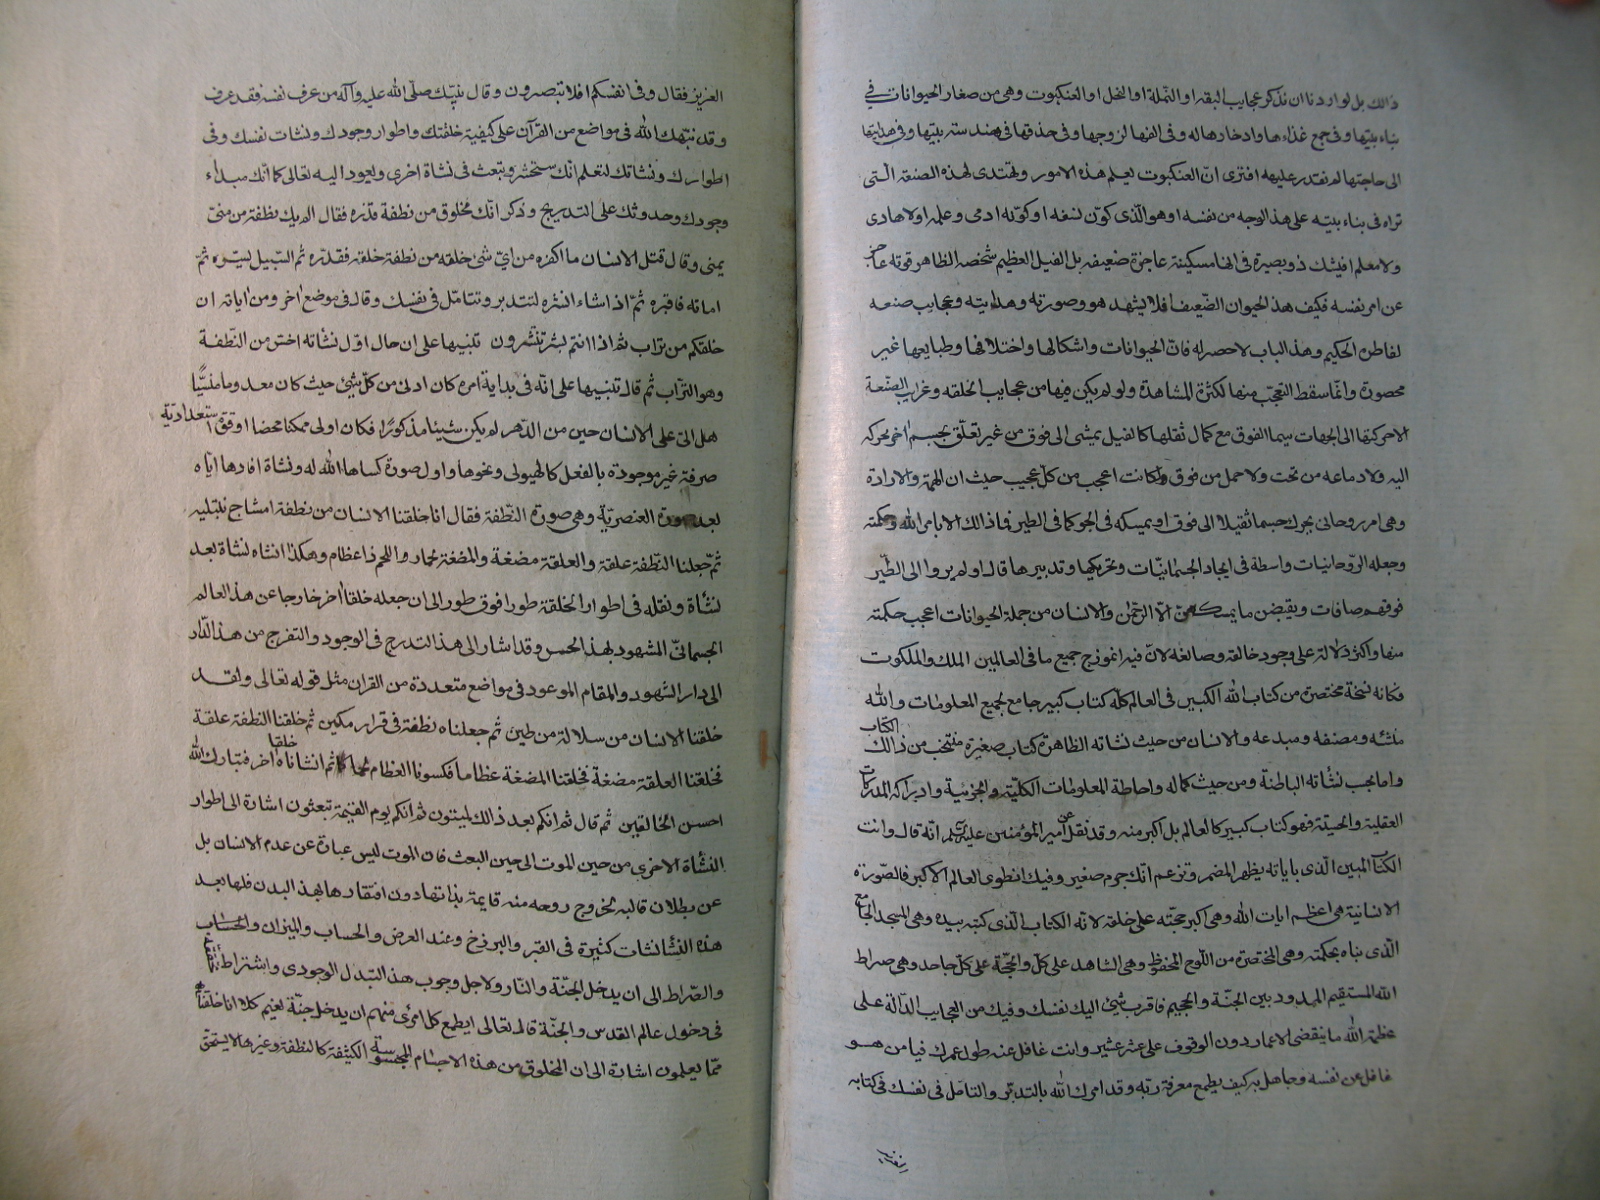 ذالك بل لو اردنا ان نذكر عجايب البقه او النملة او النحل او العنكبوت وهى من صغار الحيوانات فى
بناء بيتها وفى جمع غذاءها وادخارها له وفى الفها لزوجها وفى حذقها فى هندسته بيتها وفى هدايتها
الى حاجتها لم نقدر عليهه افترى انّ العنكبوت تعلم هذه الامور وتهتدى لهذه الصنعة الّتى
تراه فى بناء بيته على هذ الوجه من نفسه او هو الّذى كوّن نسفه او كوّنه ادمى وعلمه اولا هادى
ولا معلم افيشك ذو بصيرة فى انها مسكينة عاجزة ضعيفه بل الفيل العظيم شخصه الظاهر قوته عاجز
عن امر نفسه فكيف هذ الحيوان الضّعيف افلا يشهد هو وصورته وهدايته وعجايب صنعه
لفاطره الحكيم وهذ الباب لا حصر له فانّ الحيوانات واشكالها واختلافها وطبايعها غير
محصورة وانّما سقط التعجّب منها لكثرة المشاهدة ولو لم يكن فيها من عجايب الخلقه وغراب الصّنعة
الا حركتها الى الجهات سيما الفوق مع كمال ثقلها كالفيل يمشى الى فوق من غير تعلّق بجسم اخر يحركه
اليه ولا دماعه من تحت ولا حمل من فوق ولكانت اعجب من كلّ عجيب حيث ان الهمّة والارادة
وهى امر روحانى يحرك جسما ثقيلا الى فوق او يمسكه فى الجو كما فى الطير فما ذالك الا بامر الله وحكمته
وجعله الرّوحانيات واسطة فى ايجاد الجسمانيّات وتحريكها وتدبيرها قال اولم يروا الى الطّير
فوقهم صافات ويقبضن ما يمسكهنّ الّا الرّحمٰن والانسان من جملة الحيوانات اعجب حكمته
منها واكثر دلالة على وجود خالقه وصانعه لانّ فيه انموزج جميع ما فى العالمين الملك والملكوت
فكانه نسخة مختصرة من كتاب الله الكبير فى العالم كلّه كتاب كبير جامع لجميع المعلومات والله
منشه ومصنفه ومبدعه والانسان من حيث نشاته الظاهرة كتاب صغيرة منتخب من ذالك الكتاب
واما بجب نشأته الباطنة ومن حيث كماله واحاطة المعلومات الكليّة والجزئية وادراكه المدركات
العقلية والحسّية فهو كتاب كبير كالعالم بل اكبر منه وقد نقل عن امير المؤمنين عليه انّه قال وانت
الكتاب المبين الّذى باياته يظهر المضمر وتزعم انّك جرم صغير وفيك انطوى العالم الاكبر فالصّورة
الانسانية هى اعظم ايات الله وهى اكبر حجّته على خلقه لانّه الكتاب الّذى كتبه بيده وهى المسجد الجامع
الّذى بناه بحكمته وهى المختصرة من اللّوح المحفوظ وهى الشاهد على كلّ والحجّة على كلّ جاحد وهى صراط
الله المستقيم الممدود بين الجنّة والجحيم فاقرب شئ اليك نفسك وفيك من العجايب الدّالة على
عظمة الله ما ينقضى الاعمار دون الوقوف على عشر عشير وانت غافل عنه طول عمرك فيا من هو
غافل عن نفسه وجاهل به كيف يطمع معرفة ربّه وقد امرك الله بالتدبّر والتامّل فى نفسك فى كتابه
العزيز فقال وفى انفسكم افلا تبصرون وقال نبيّك صلّى الله عليه وآله من عرف نفسه فقد عرف
وقد نبّهك الله فى مواضع من القرآن على كيفية خلقتك واطوار وجودك ونشات نفسك وفى
اطوارك ونشاتك لتعلم انّك ستحشر وتبعث فى نشاة اخرى وتعود اليه تعالى كما انّك مبداء
وجودك وحدوثك على التدريج وذكر انّك مخلوق من نطفة قذره فقال الم يك نطفة من منىّ
يمنى وقال قتل الانسان ما اكفره من اىّ شئ خلقه من نطفة خلقه فقدّره ثم السّبيل يسّره ثمّ
اماته فاقبره ثمّ اذ اشاء انشره لتتدبر وتتامّل فى نفسك وقال فى موضع اخر ومن اياته ان
خلقكم من تراب ثم اذا انتم بشر تنتشرون تنبيها على ان حال اوّل نشأته اخسّ من النّطفة
وهو التّراب ثمّ قال تنبيها على انّه فى بداية امره كان ادنى من كلّ شئ حيث كان معدوما منسيًّا
هل اتى على الانسان حين من الدّهر لم يكن شيئا مذكورًا فكان اولى ممكنا محضا او قوّة استعدادية
صرفة غير موجودة بالفعل كالهيولى ونحوها واول صورة كساها الله له ونشاة افادها ايّاه
بعد صورة العنصرية وهى صورة النّطفة فقال انا خلقنا الانسان من نطفة امشاج نبتليه
ثمّ جعلنا النّطفة علقة والعلقة مضغة والمضغة لحما واللحم ذا عظام وهكذا انشاه نشاة بعد
نشأة ونقله فى اطوار الخلقة طورا فوق طور الى ان جعله خلقا اخر خارجا عن هذ العالم
الجسمانىّ المشهود بهذ الحس وقد اشار الى هذ التدرج فى الوجود والتفرج من هذ الدّار
الى دار الشهود والمقام الموعود فى مواضع متعددة من القران مثل قوله تعالى ولقد
خلقنا الانسان من سلالة من طين ثم جعلناه نطفة فى قرار مكين ثم خلقنا النطفة علقة
فخلقنا العلقة مضغة فخلقنا المضغة عظاما فكسونا العظام لحما ثم انشاناه خلقا اخر فتبارك الله
احسن الخالقين ثم قال ثم انكم بعد ذالك لميتون ثم انكم يوم القيمة تبعثون اشارة الى اطوار
النشأة الاخرى من حين الموت الى حين البعث فان الموت ليس عبارة عن عدم الانسان بل
عن بطلان قالبه لخروج روحه منه قايمة بذاتها دون افتقارها بهذ البدن فلها بعد
هذه النشأ نشات كثيرة فى القبر والبرزخ وعند العرض والحساب والميزان والحساب
والصّراط الى ان يدخل الجنّة والنّار ولاجل وجوب هذ التبدل الوجودى واشتراط
فى دخول عالم القدس والجنّة قال تعالى ايطمع كل امرئ منهم ان يدخل جنّة نعيم كلا انا خلقناهم
ممّا يعلمون اشارة الى ان المخلوق من هذه الاجسام المحسوسة الكثيفة كالنطفة وغيرها لا يستحقّ